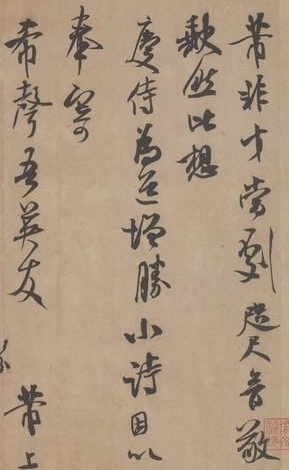 芾非才當劇咫尺音敬
缺然比想
慶侍為道增勝小詩因以
奉寄
希聲吾英友
芾上